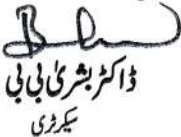 ڈاکٹر بشریٰ بی بی
سیکرٹری